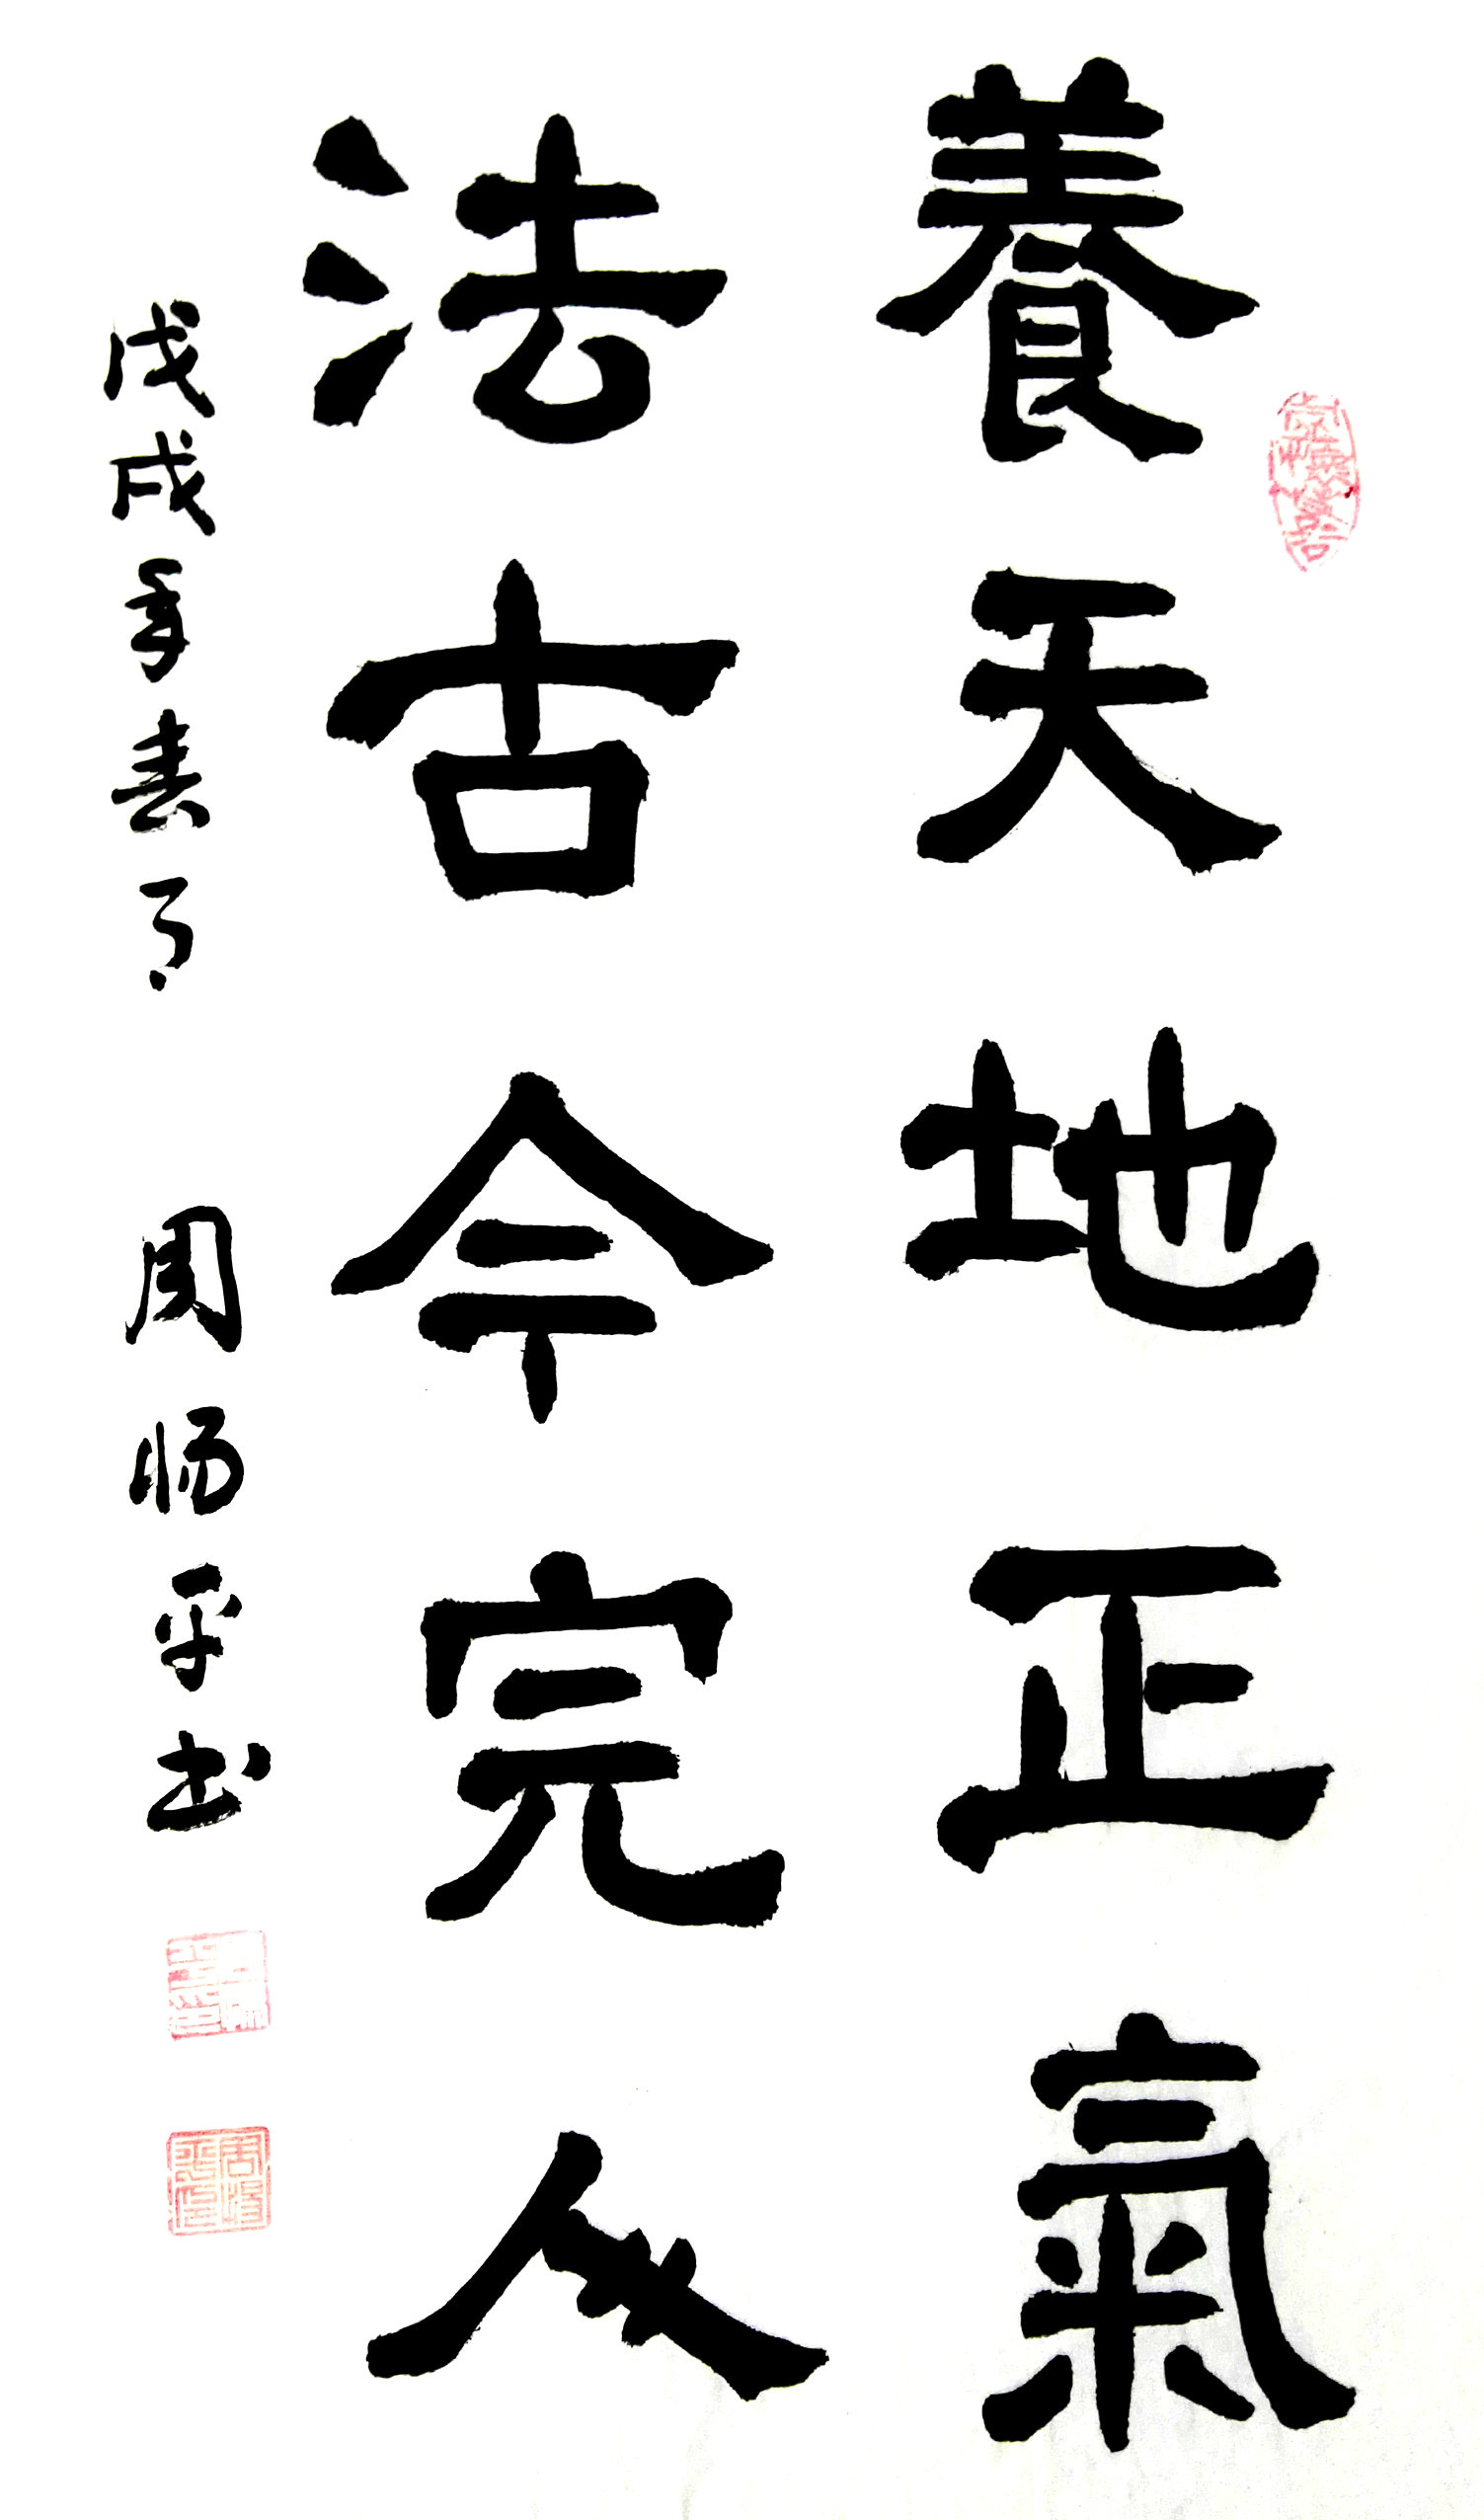 養天地正氣
法古今完人
戊戌年春月 周惕平书